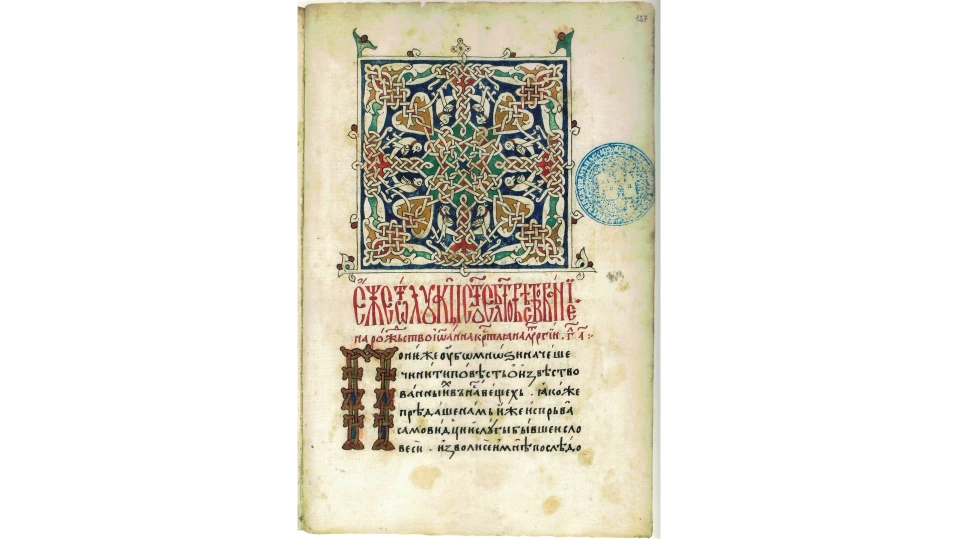 127
Є҆же ѿ лꙋкы ст҃ое бл҃говѣствованїе
на рож҃ьство іѡанна крⷭ҇тлꙗ на лꙋргїи .
Понѥже оу҆бѡ мнѡѕи начеше
чинити повѣсть ѡ҆ и҆звѣство
ванныи҆хъ въ на҃ вещехь . ꙗкоже
прѣдаше намь и҆же испрьва
самовидци и слꙋгы бывшеи сло
веси . и҆зволисе и҆ мнѣ послѣдо